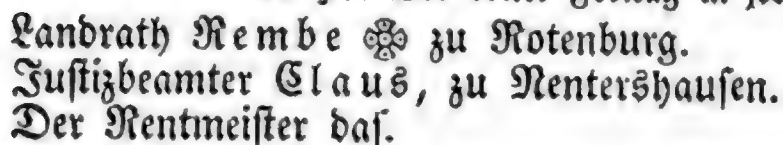 Landrath Rembe zu Rotenburg.
Justizbeamter Claus, zu Nentershausen.
Der Rentmeister das.